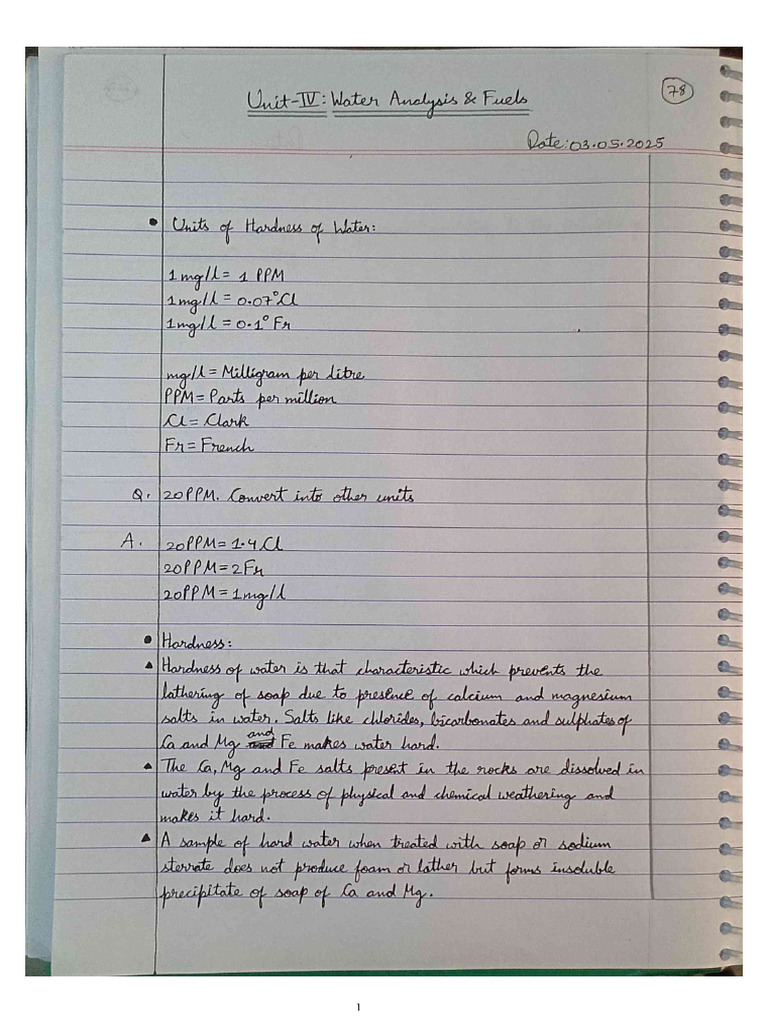 Unit-IV: Water Analysis & Fuels
78
Date: 03.05.2025
• Units of Hardness of Water:
1mg/l = 1 PPM
1mg/l = 0.07°Cl
1mg/l = 0.1° Fr
mg/l = Milligram per litre
PPM = Parts per million
Cl = Clark
Fr = French
Q. 20PPM. Convert into other units
A. 20PPM = 1.4Cl
20PPM = 2Fr
20PPM = 1mg/l
• Hardness:
▲ Hardness of water is that characteristic which prevents the
lathering of soap due to presence of calcium and magnesium
salts in water. Salts like chlorides, bicarbonates and sulphates of
Ca and Mg and Fe makes water hard.
▲ The Ca, Mg and Fe salts present in the rocks are dissolved in
water by the process of physical and chemical weathering and
makes it hard.
▲ A sample of hard water when treated with soap or sodium
sterrate does not produce foam or lather but forms insoluble
precipitate of soap of Ca and Mg.
1